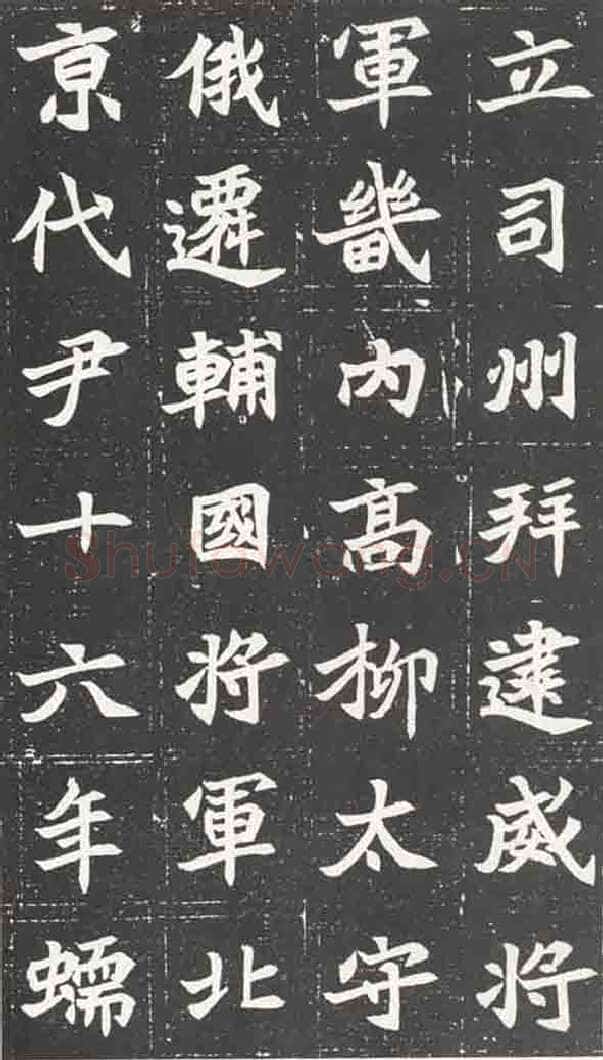 立司州拜建威將
軍畿內高柳太守
俄遷輔國將軍北
京代尹十六年蠕
Shufawang.CN